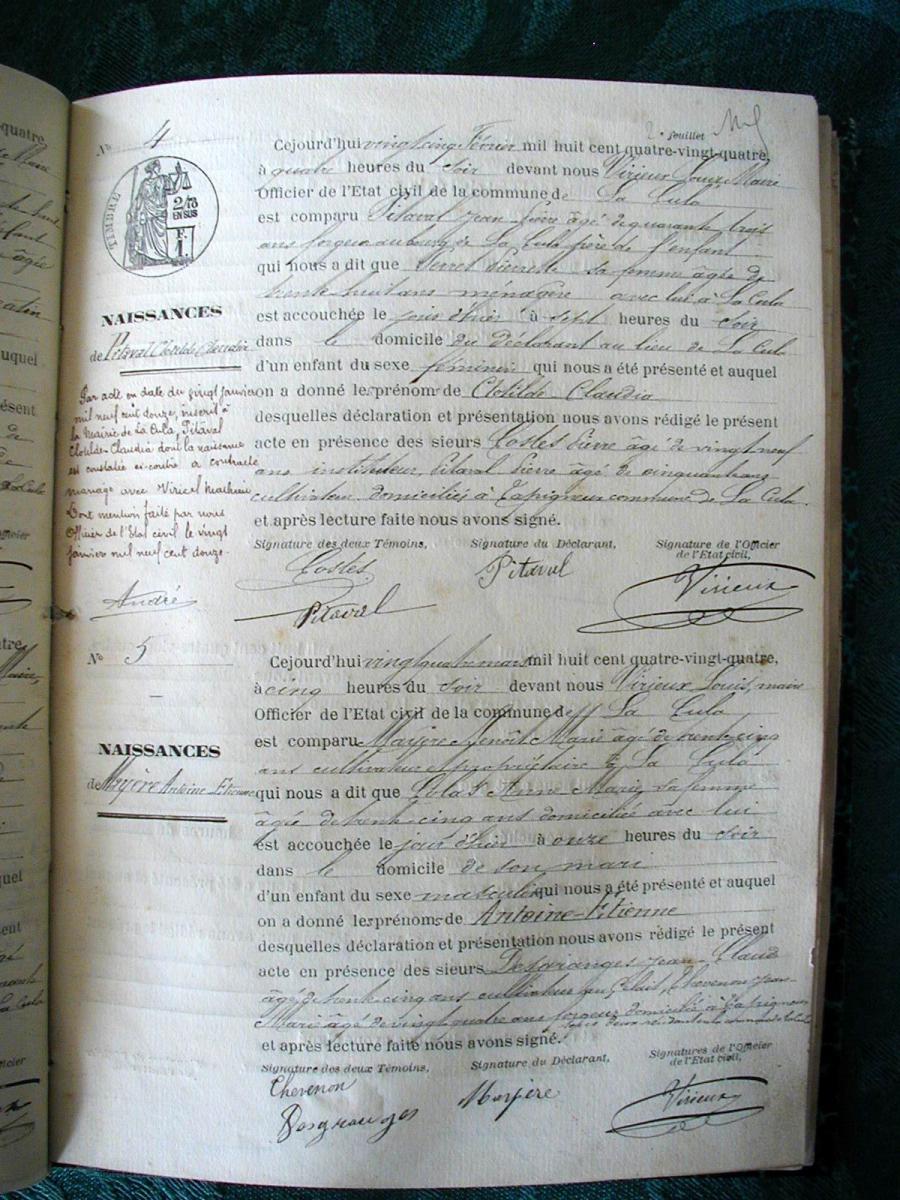 2e feuillet
No 4
TIMBRE
2/10
EN SUS
NAISSANCES
de Pitaval Clotilde Claudia
Par acte en date du vingt Janvier
mil neuf cent douze, inscrit à
la Mairie de La Cula, Pitaval
Clotilde-Claudia dont la naissance
est constatée ci-contre a contracté
mariage avec Viricel Mathieu
Dont mention faite par nous
Officier de l'Etat civil le vingt
janvier mil neuf cent douze.
André
Cejourd'hui vingt cinq Février mil huit cent quatre-vingt-quatre,
à quatre heures du soir devant nous Virieux Louis Maire
Officier de l'Etat civil de la commune de La Cula
est comparu Pitaval Jean âgé de quarante trois
ans de La Cula père de l'enfant
qui nous a dit que sa femme âgée de
trente huit ans ménagère avec lui à La Cula
est accouchée le jour d'hier à sept heures du soir
dans le domicile du déclarant au lieu de La Cula
d'un enfant du sexe féminin qui nous a été présenté et auquel
on a donné les prénoms de Clotilde Claudia
desquelles déclaration et présentation nous avons rédigé le présent
acte en présence des sieurs Costes Pierre âgé de vingt neuf
ans instituteur, Pitaval Pierre âgé de cinquante ans
cultivateur domiciliés à Tapigneux commune de La Cula
et après lecture faite nous avons signé.
Signature des deux Témoins, Signature du Déclarant, Signature de l'Officier
de l'Etat civil,
Costes Pitaval Virieux
Pitaval
No 5
NAISSANCES
de Mayère Antoine Etienne
Cejourd'hui vingt quatre mars mil huit cent quatre-vingt-quatre,
à cinq heures du soir devant nous Virieux Louis, maire
Officier de l'Etat civil de la commune de La Cula
est comparu Mayère Benoît Marie âgé de trente cinq
ans cultivateur et propriétaire à La Cula
qui nous a dit que Colas Anne Marie, sa femme
âgée de trente-cinq ans domiciliée avec lui
est accouchée le jour d'hier à onze heures du soir
dans le domicile de son mari
d'un enfant du sexe masculin qui nous a été présenté et auquel
on a donné les prénoms de Antoine-Etienne
desquelles déclaration et présentation nous avons rédigé le présent
acte en présence des sieurs Desgranges Jean-Claude
âgé de trente cinq ans cultivateur au Chevenon Jean
Marie âgé de vingt quatre ans forgeur domicilié à Tapigneux
tous deux
et après lecture faite nous avons signé.
Signature des deux Témoins, Signature du Déclarant, Signatures de l'Officier
de l'Etat civil,
Chevenon Mayère Virieux
Desgranges